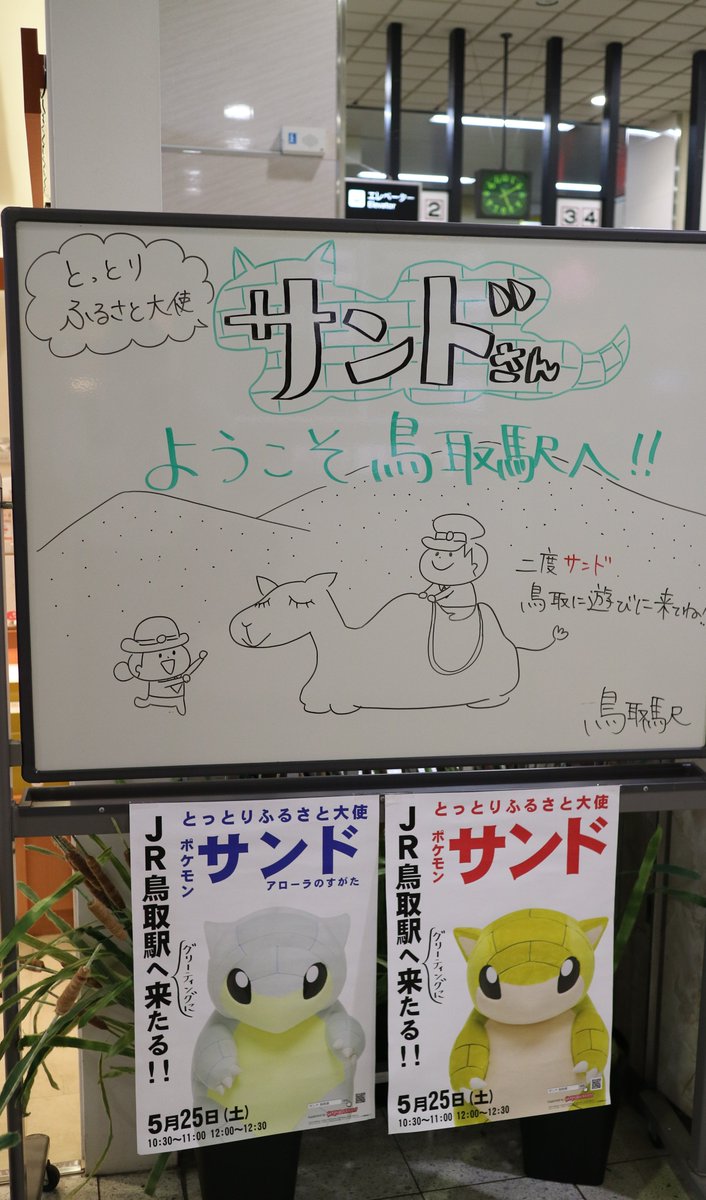 エレベーター
Elevator
2
3 4
とっとり
ふるさと大使
サンドさん
ようこそ鳥取駅へ!!
二度サンド
鳥取に遊びに来てね!!
鳥取駅
とっとりふるさと大使
ポケモン
サンド
アローラのすがた
JR鳥取駅へ来たる!!
グリーティングに
5月25日(土)
10:30〜11:00 12:00〜12:30
とっとりふるさと大使
ポケモン
サンド
JR鳥取駅へ来たる!!
グリーティングに
5月25日(土)
10:30〜11:00 12:00〜12:30